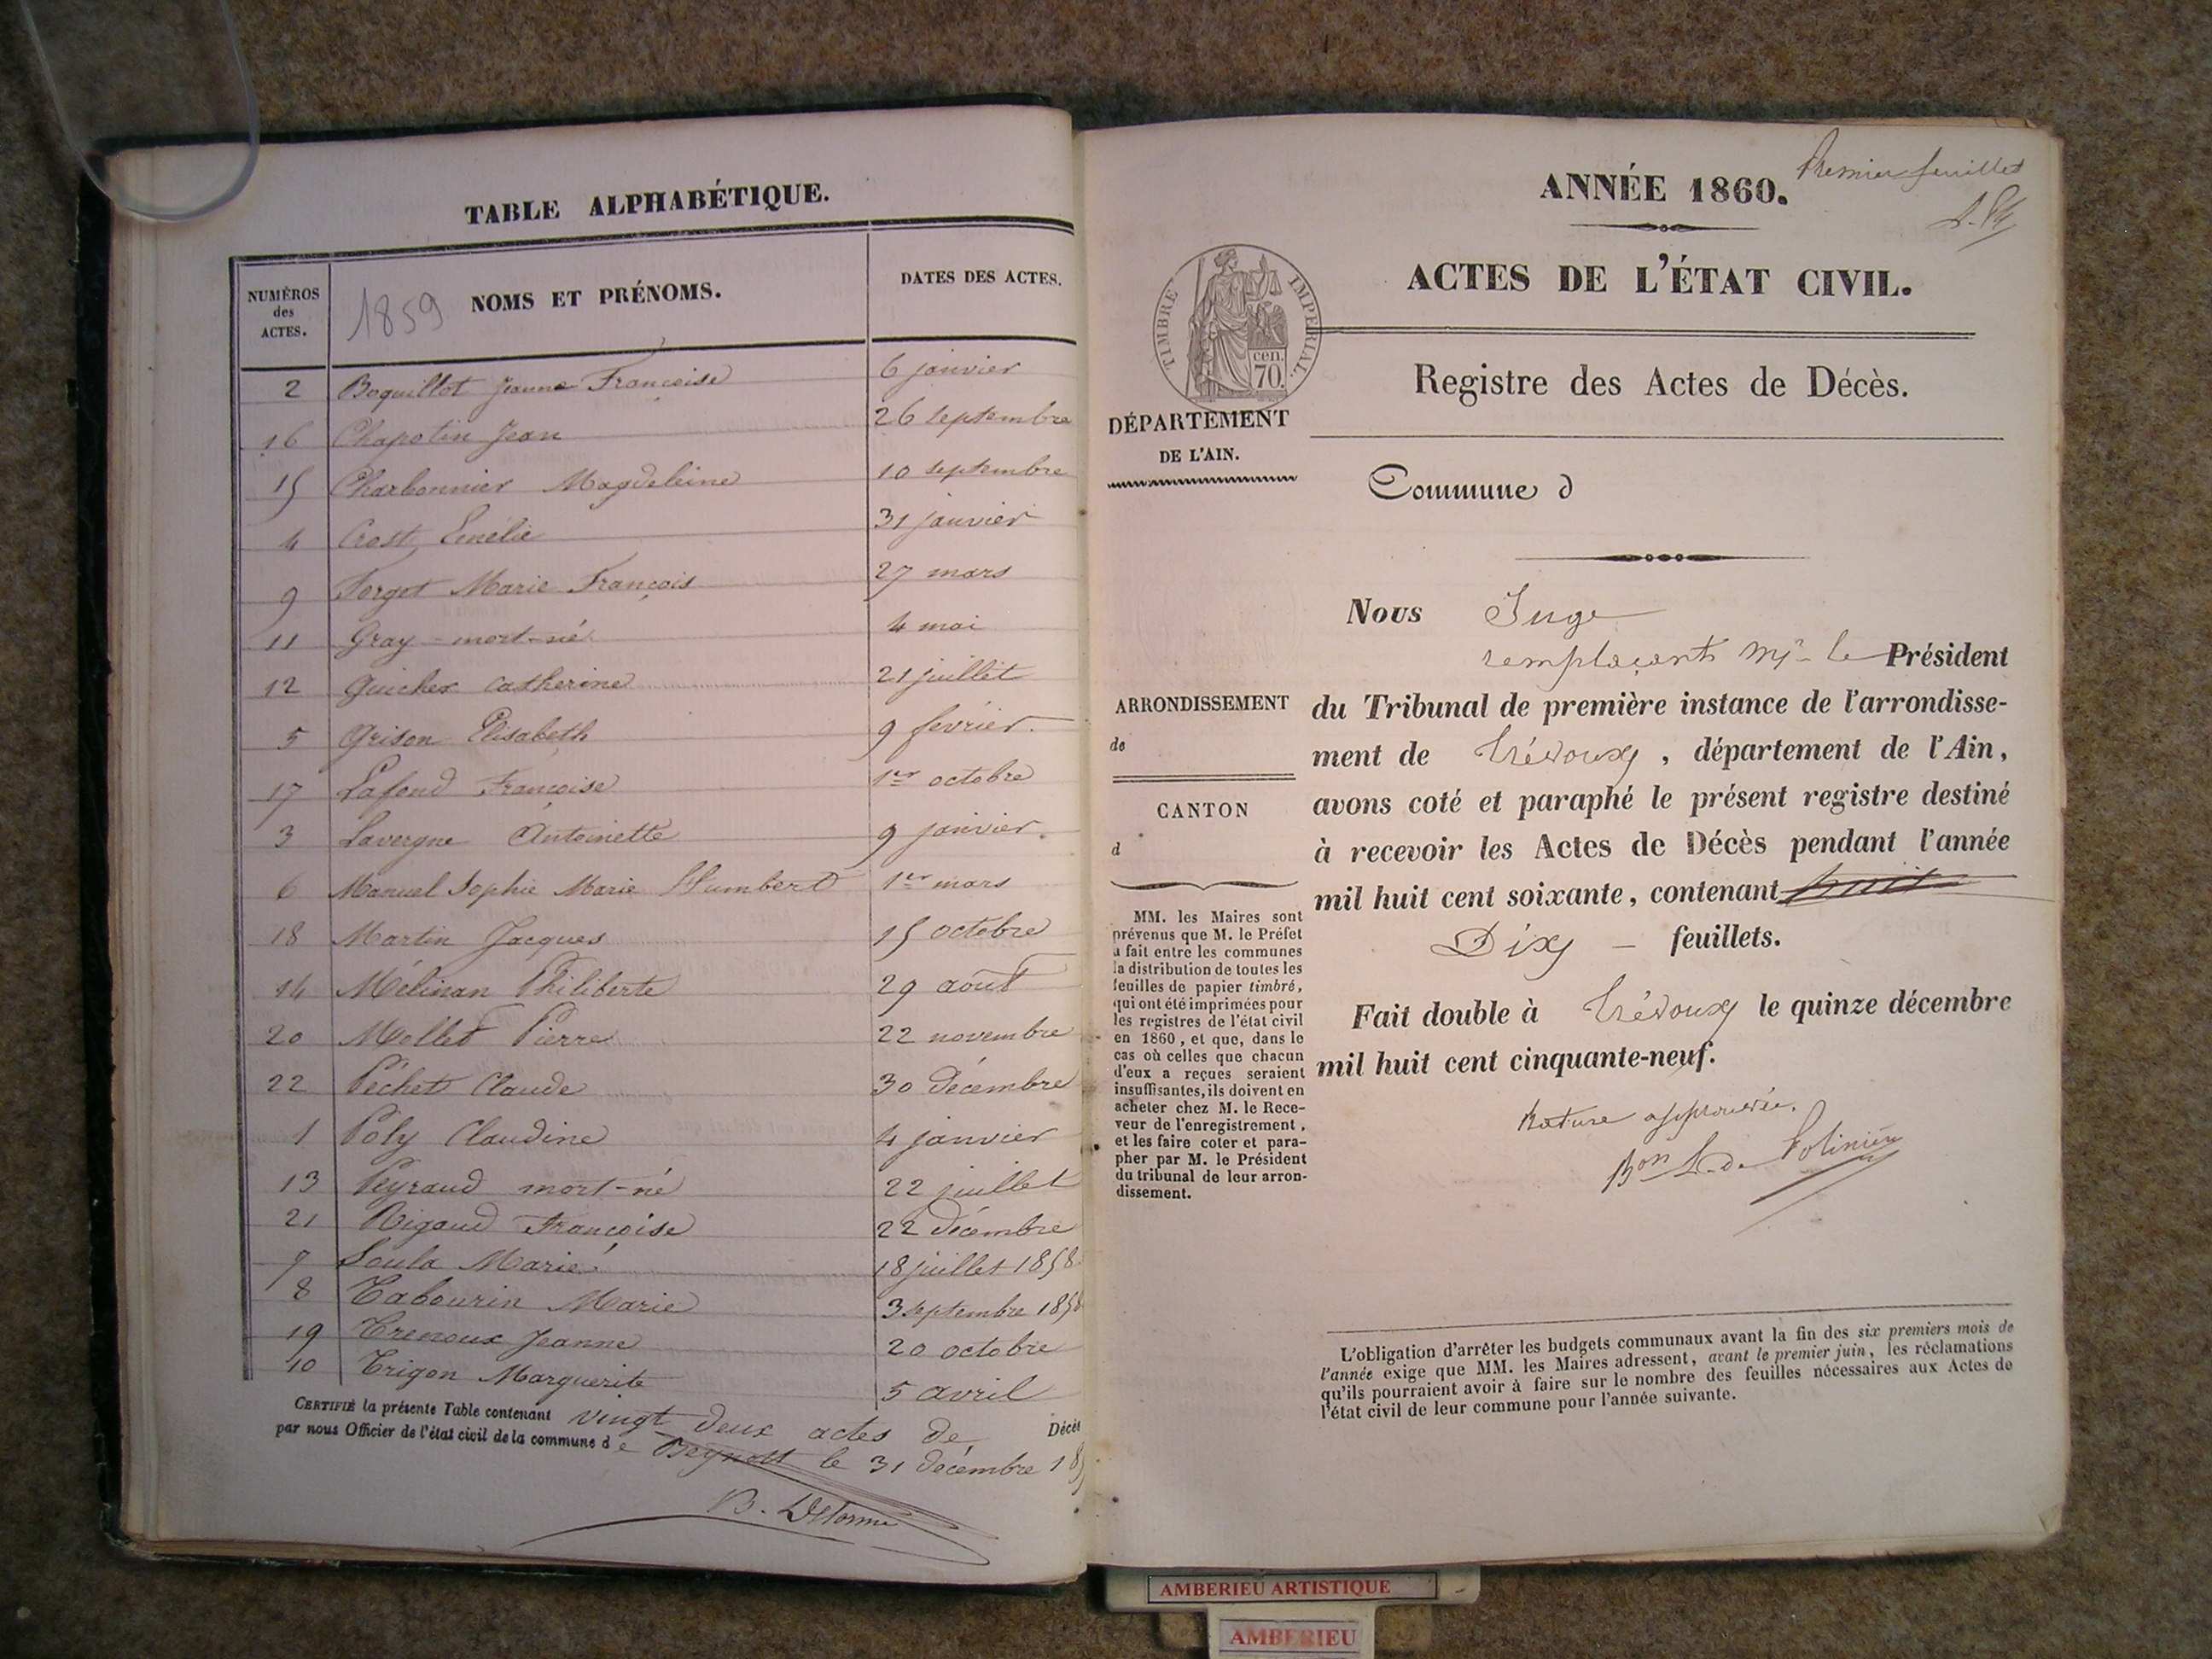 TABLE ALPHABÉTIQUE.
NUMÉROS des ACTES.
1859 NOMS ET PRÉNOMS.
DATES DES ACTES.
2 Boquillot Jeanne Françoise 6 janvier
16 Chapotin Jean 26 septembre
15 Charbonnier Magdeleine 10 septembre
4 Crost Emélie 31 janvier
9 Forgot Marie François 27 mars
11 Gray mort-né 4 mai
12 Guicher Catherine 21 juillet
5 Grison Elisabeth 9 fevrier
17 Lafond Françoise 1er octobre
3 Lavergne Antoinette 9 janvier
6 Manuel Sophie Marie Humbert 1er mars
18 Martin Jacques 15 octobre
14 Mélinan Philiberte 29 août
20 Mollet Pierre 22 novembre
22 Péchet Claude 30 décembre
1 Poly Claudine 4 janvier
13 Peyraud mort-né 22 juillet
21 Rigaud Françoise 22 décembre
7 Soula Marie 18 juillet 1858
8 Tabourin Marie 3 septembre 1858
19 Trenoux Jeanne 20 octobre
10 Trigon Marguerite 5 avril
CERTIFIÉ la présente Table contenant vingt deux actes de Décès
par nous Officier de l'état civil de la commune de Beynost le 31 décembre 185
B. Delorme
Premier feuillet
ANNÉE 1860.
ACTES DE L'ÉTAT CIVIL.
TIMBRE IMPERIAL.
cen.
70.
Registre des Actes de Décès.
DÉPARTEMENT
DE L'AIN.
Commune d
Nous Juge
remplaçant Mr le Président
ARRONDISSEMENT
de
CANTON
d
du Tribunal de première instance de l'arrondisse-
ment de Trévoux, département de l'Ain,
avons coté et paraphé le présent registre destiné
à recevoir les Actes de Décès pendant l'année
mil huit cent soixante, contenant huit
Dix feuillets.
Fait double à Trévoux le quinze décembre
mil huit cent cinquante-neuf.
Rature approuvée.
Bon L. de Polinière
MM. les Maires sont
prévenus que M. le Préfet
a fait entre les communes
la distribution de toutes les
feuilles de papier timbré,
qui ont été imprimées pour
les registres de l'état civil
en 1860, et que, dans le
cas où celles que chacun
d'eux a reçues seraient
insuffisantes, ils doivent en
acheter chez M. le Rece-
veur de l'enregistrement,
et les faire coter et para-
pher par M. le Président
du tribunal de leur arron-
dissement.
L'obligation d'arrêter les budgets communaux avant la fin des six premiers mois de
l'année exige que MM. les Maires adressent, avant le premier juin, les réclamations
qu'ils pourraient avoir à faire sur le nombre des feuilles nécessaires aux Actes de
l'état civil de leur commune pour l'année suivante.
AMBERIEU ARTISTIQUE
AMBERIEU